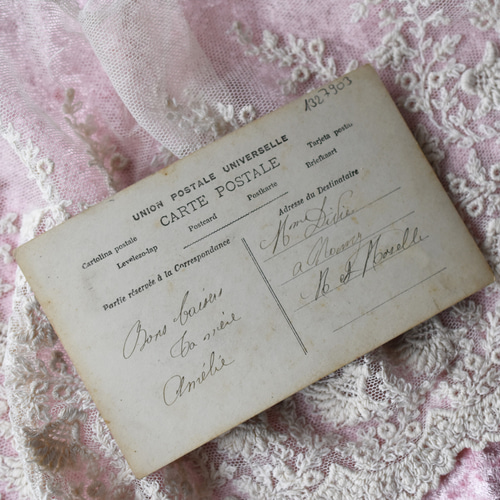 1327903
UNION POSTALE UNIVERSELLE
CARTE POSTALE
Cartolina postale
Levelezo-lap
Postcard
Postkarte
Tarjeta postal
Briefkaart
Partie réservée à la Correspondance
Adresse du Destinataire
Bons baisers
Ta mère
Amélie
Mme Didie
à
M et Moselle